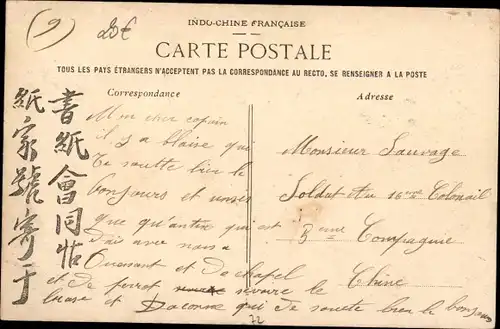 9
20€
INDO-CHINE FRANÇAISE
CARTE POSTALE
TOUS LES PAYS ÉTRANGERS N'ACCEPTENT PAS LA CORRESPONDANCE AU RECTO, SE RENSEIGNER A LA POSTE
Correspondance
Mon cher copain
il y a blaise qui
Te souette bien le
bonjours et
que qui est
avec nous a
Ouessant et de chapel
et de le
et que Je souette bien le bonjour
Adresse
Monsieur Sauvage
Soldat au 16eme Colonail
3eme Compagnie
Chine
書紙會同帖
紙家號寄于